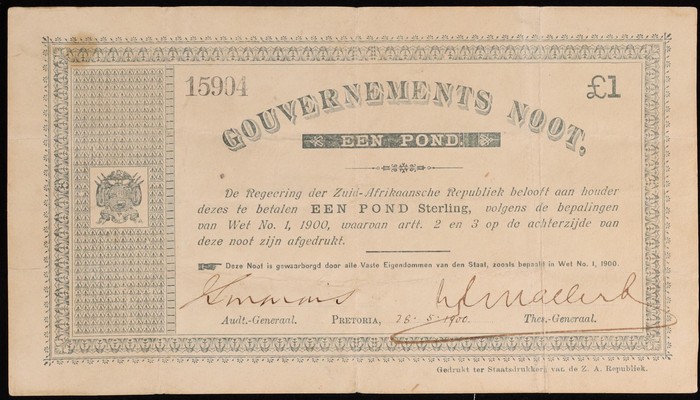 15904
£1
GOUVERNEMENTS NOOT,
EEN POND.
De Regeering der Zuid-Afrikaansche Republiek belooft aan houder
dezes te betalen EEN POND Sterling, volgens de bepalingen
van Wet No. 1, 1900, waarvan artt. 2 en 3 op de achterzijde van
deze noot zijn afgedrukt.
Deze Noot is gewaarborgd door alle Vaste Eigendommen van den Staat, zooals bepaald in Wet No. 1, 1900.
Audt.-Generaal.
PRETORIA, 28-5-1900.
Thes.-Generaal.
Gedrukt ter Staatsdrukkerij van de Z. A. Republiek.